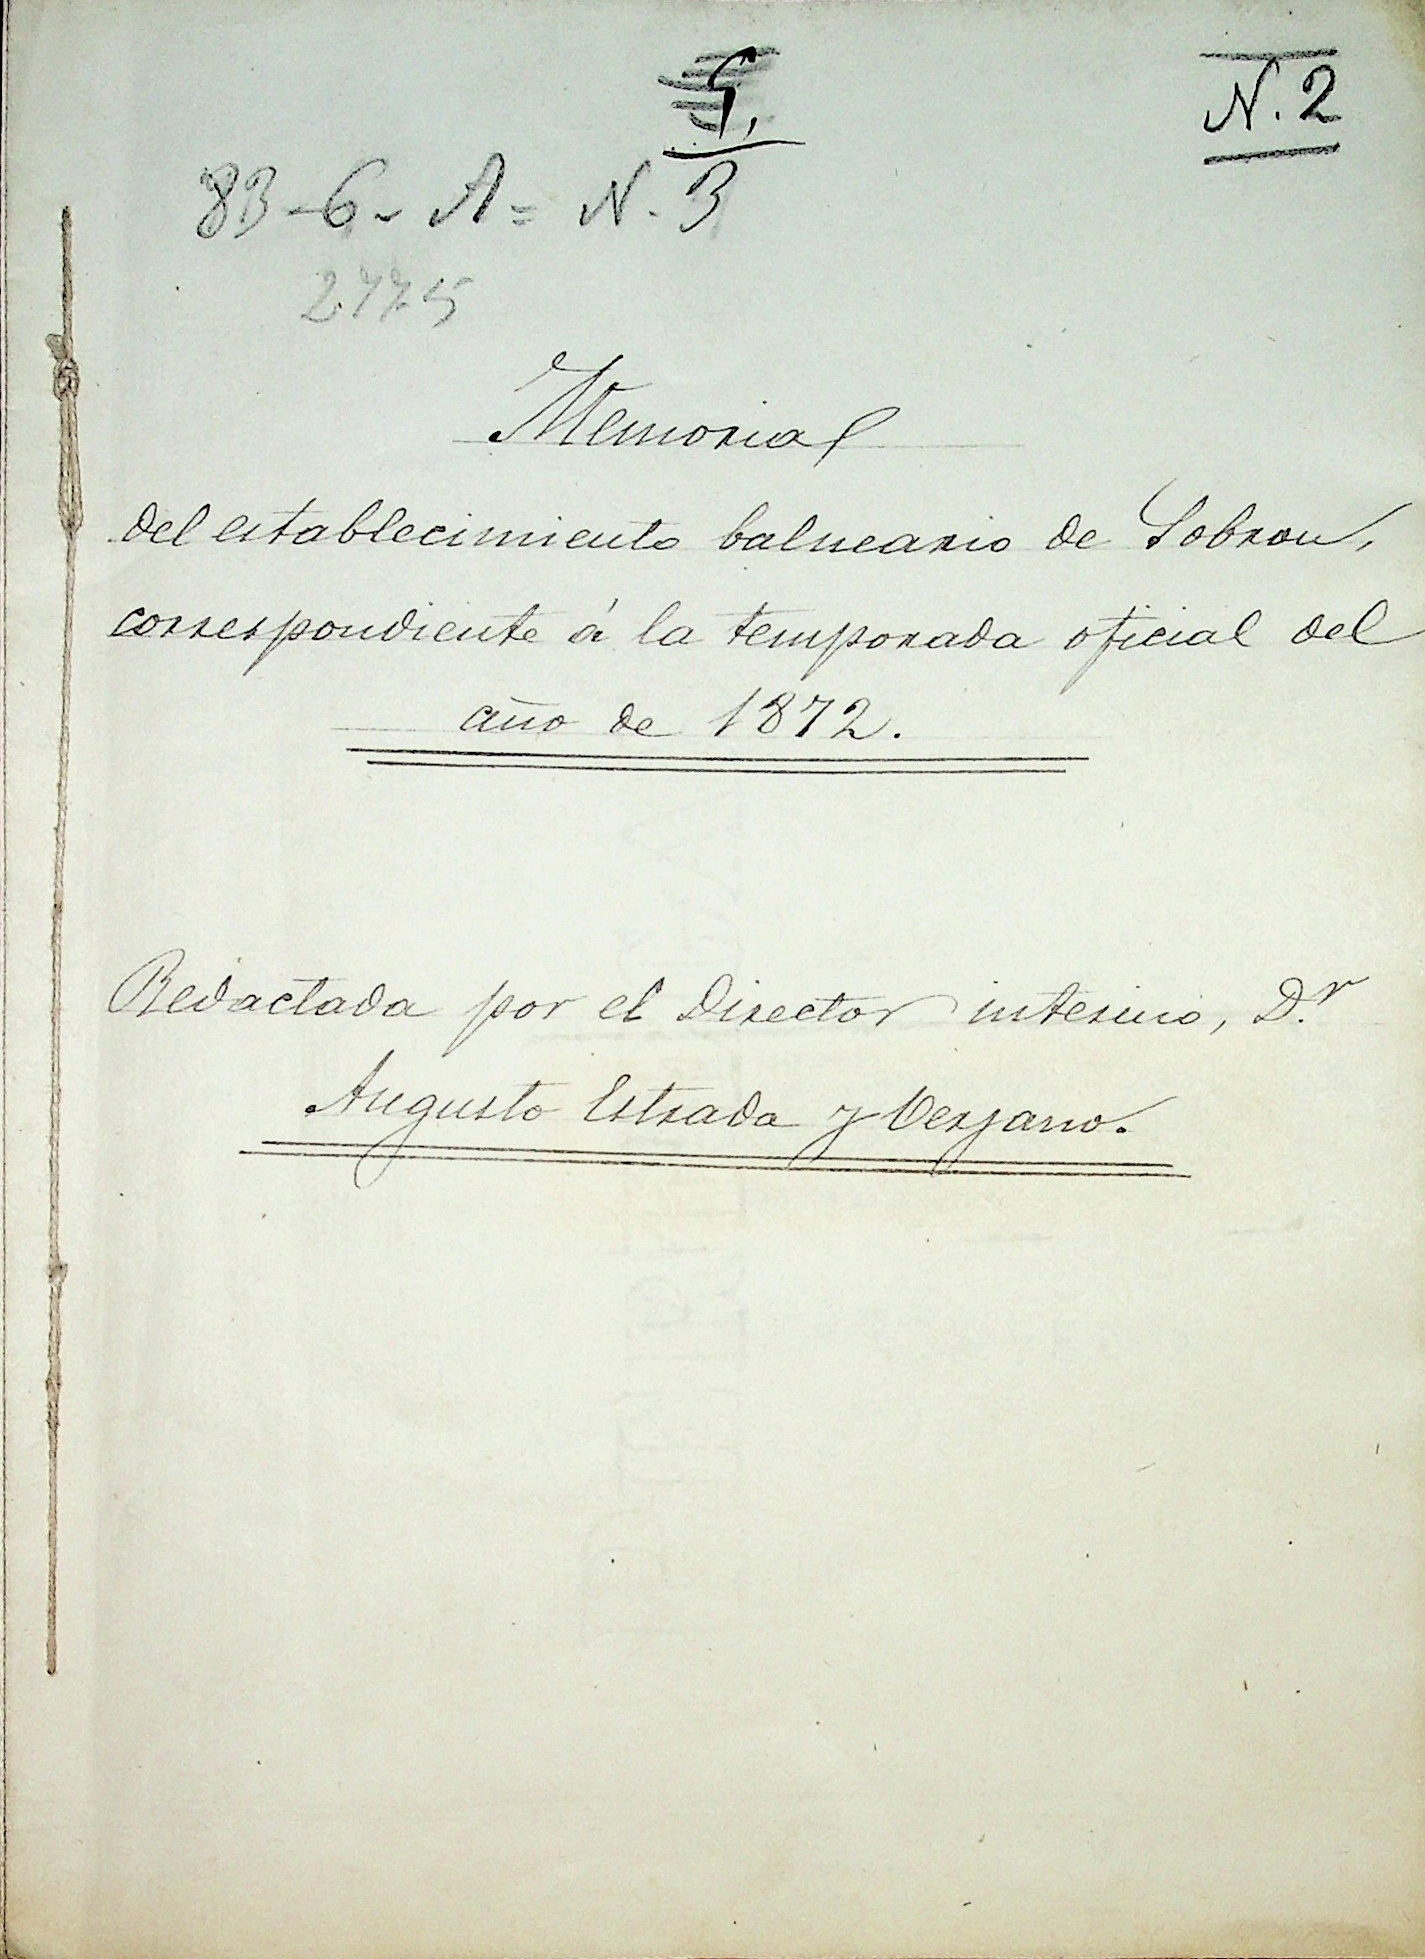 N. 2
83-6- A= N. 3
2775
Memorial
del establecimiento balneario de Sobron,
correspondiente á la temporada oficial del
año de 1872.
Redactada por el Director interino, D.r
Augusto Estrada y Verjano.